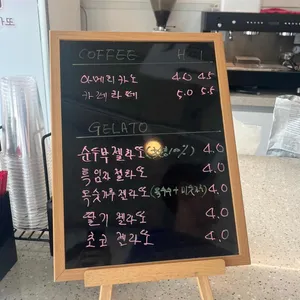 COFFEE H I
아메리카노 4.0 4.5
카페라떼 5.0 5.5
GELATO
순두부젤라또 4.0
특임자젤라또 4.0
옥숫가루젤라또 4.0
딸기젤라또 4.0
초코젤라또 4.0